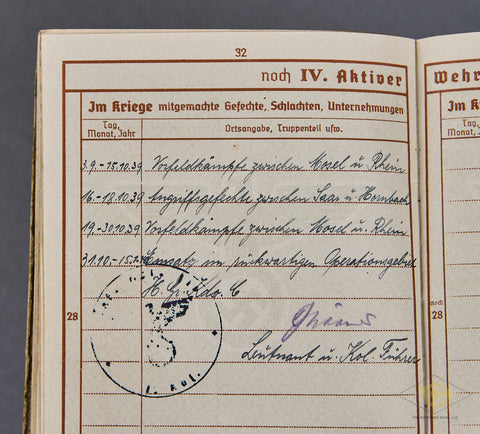 32
noch IV. Aktiver
Im Kriege mitgemachte Gefechte, Schlachten, Unternehmungen
Tag, Monat, Jahr
Ortsangabe, Truppenteil usw.
3.9.-15.10.39 Vorfeldkämpfe zwischen Mosel u. Rhein
16.-18.10.39 Angriffsgefechte zwischen Saar u. Hornbach
19.-30.10.39 Vorfeldkämpfe zwischen Mosel u. Rhein
31.10.- Einsatz im rückwärtigen Operationsgebiet
H. Gr. Kdo. C
28
Leutnant u. Kol. Führer
Kol.
Wehr
Im K
Tag,
Monat, Ja
noch
28